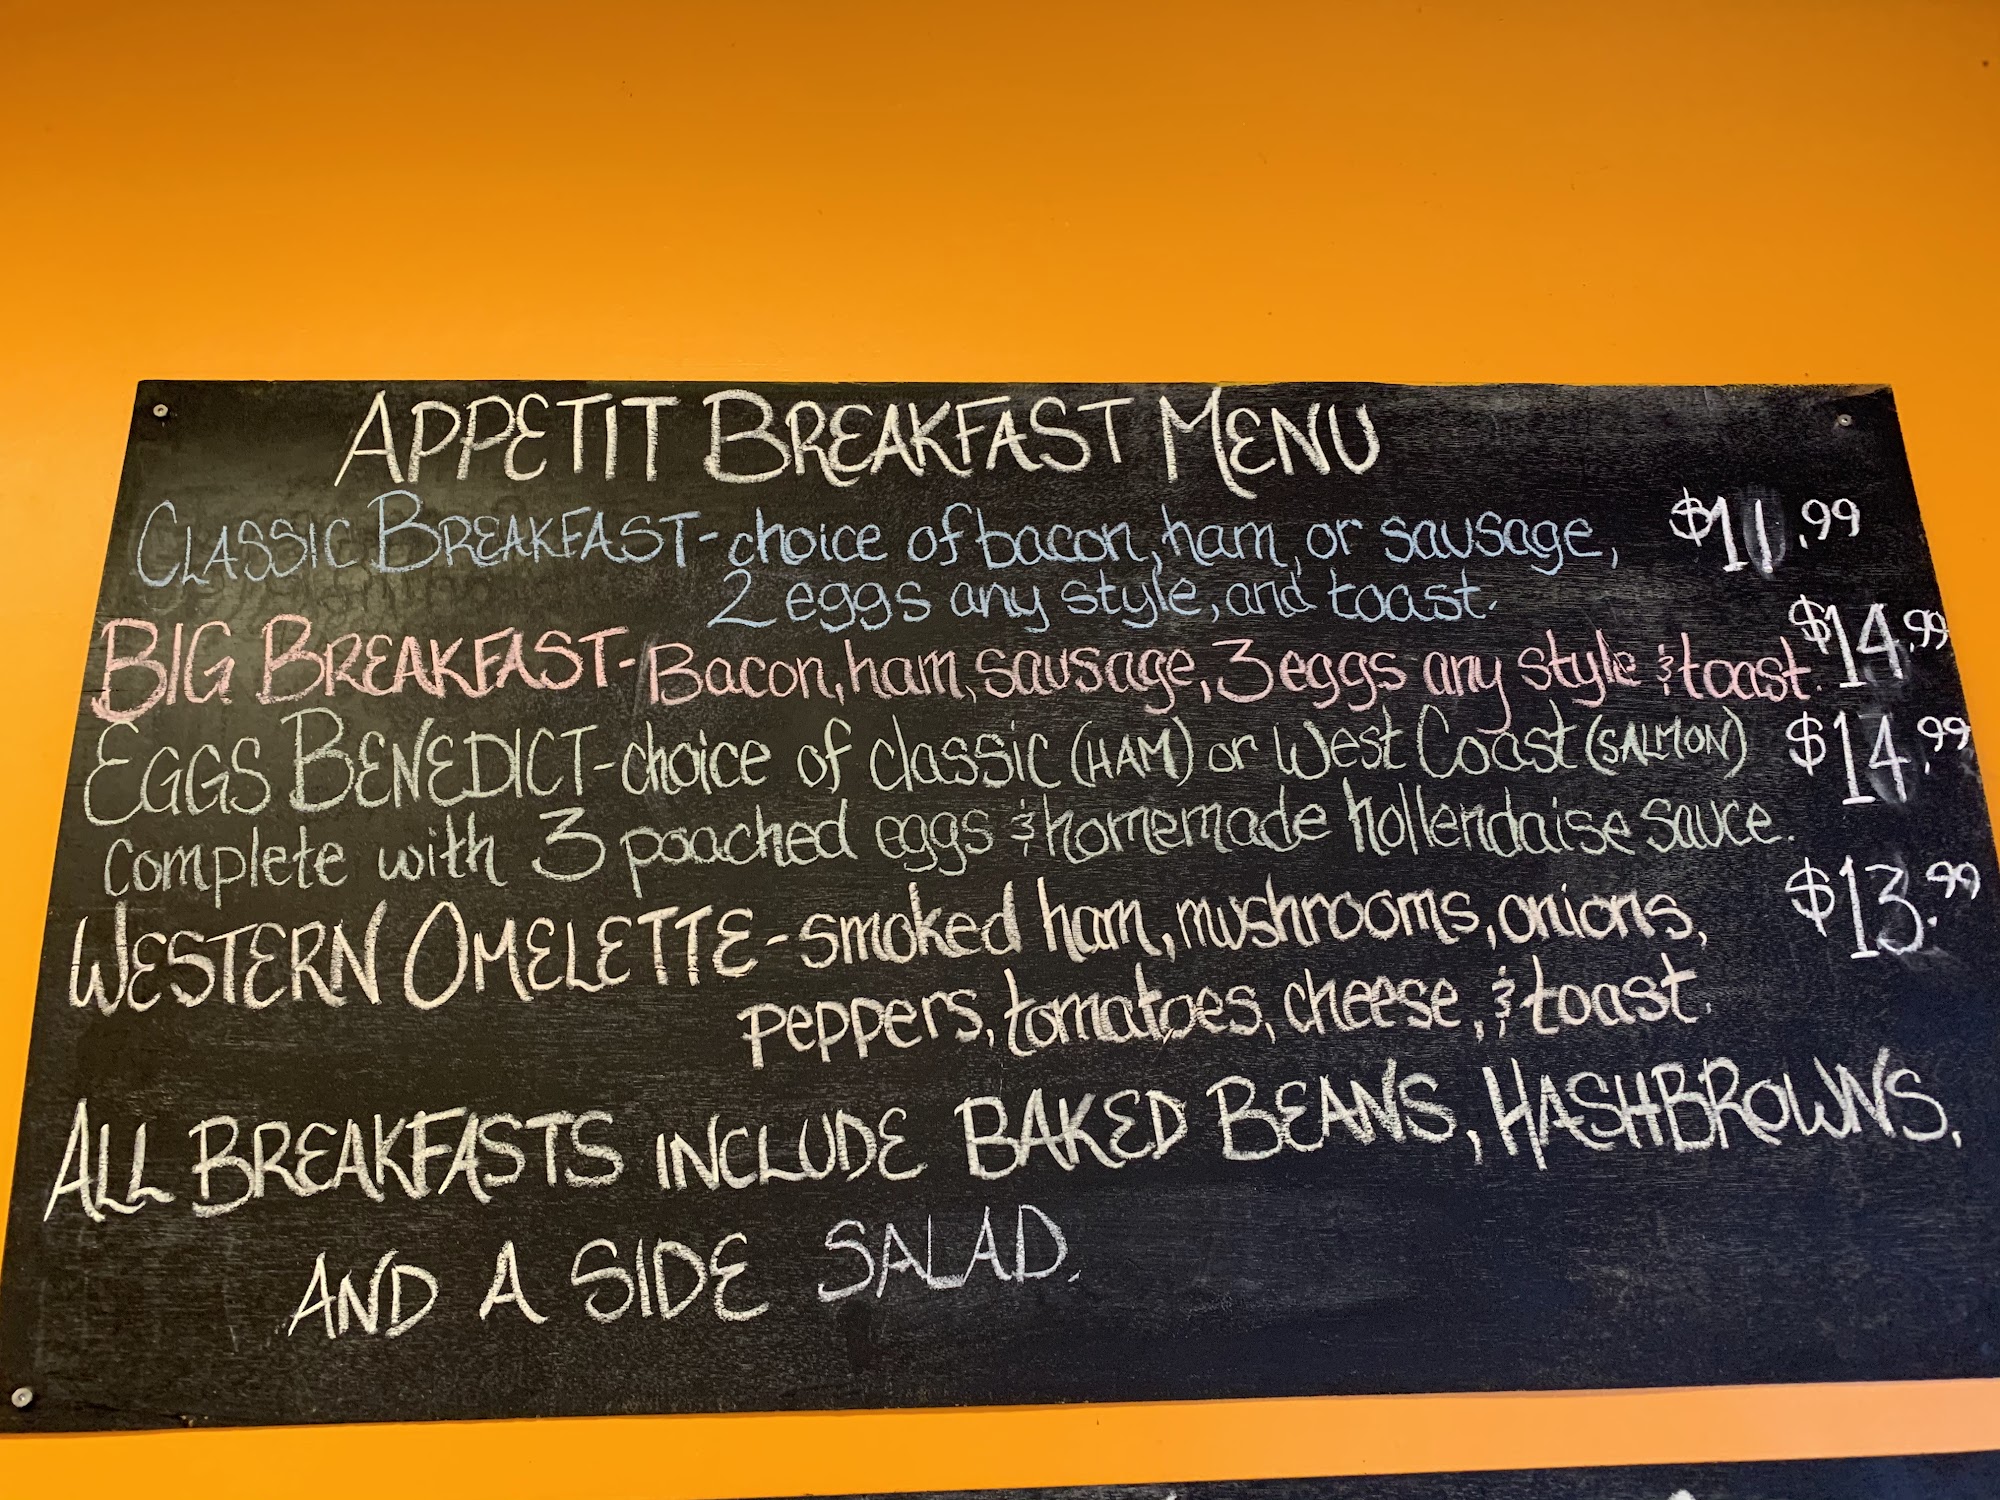 APPETIT BREAKFAST MENU
CLASSIC BREAKFAST - choice of bacon, ham, or sausage, $11.99
2 eggs any style, and toast.
BIG BREAKFAST - Bacon, ham, sausage, 3 eggs any style & toast. $14.99
EGGS BENEDICT - choice of classic (HAM) or West Coast (SALMON) $14.99
complete with 3 poached eggs & homemade hollendaise sauce.
WESTERN OMELETTE - smoked ham, mushrooms, onions, $13.99
peppers, tomatoes, cheese, & toast.
ALL BREAKFASTS INCLUDE BAKED BEANS, HASHBROWNS,
AND A SIDE SALAD.